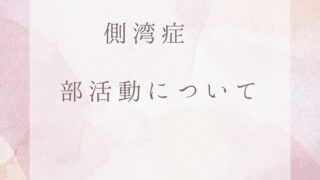 側湾症
部活動について